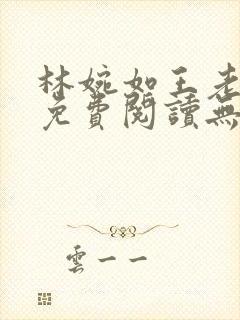 林婉如王老
免費閱讀無
雲一一